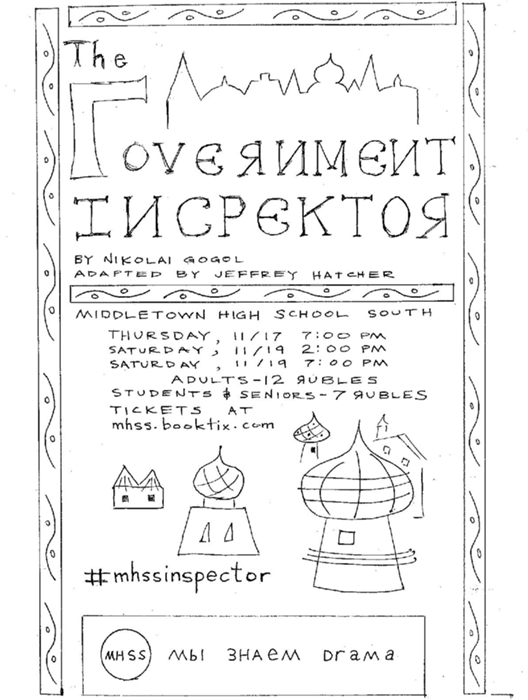 The
ГOVЄЯИMЄИT
IИCPЄKTOЯ
BY NIKOLAI GOGOL
ADAPTED BY JEFFREY HATCHER
MIDDLETOWN HIGH SCHOOL SOUTH
THURSDAY, 11/17 7:00 PM
SATURDAY, 11/19 2:00 PM
SATURDAY, 11/19 7:00 PM
ADULTS-12 ЯUBLES
STUDENTS & SENIORS-7 ЯUBLES
TICKETS AT
mhss.booktix.com
#mhssinspector
MHSS мы знаем Drama